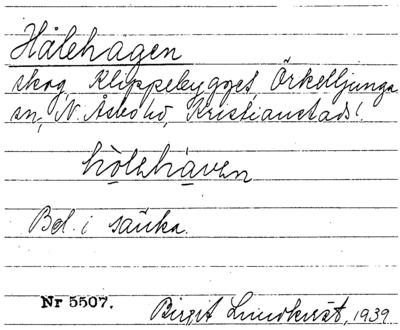 Hålehagen
skog, Klippebygget, Örkelljunga
sn, N. Åsbo hd, Kristianstads l.
hòlehàven
Bel. i sänka.
Nr 5507. Birgit Lindkvist, 1939